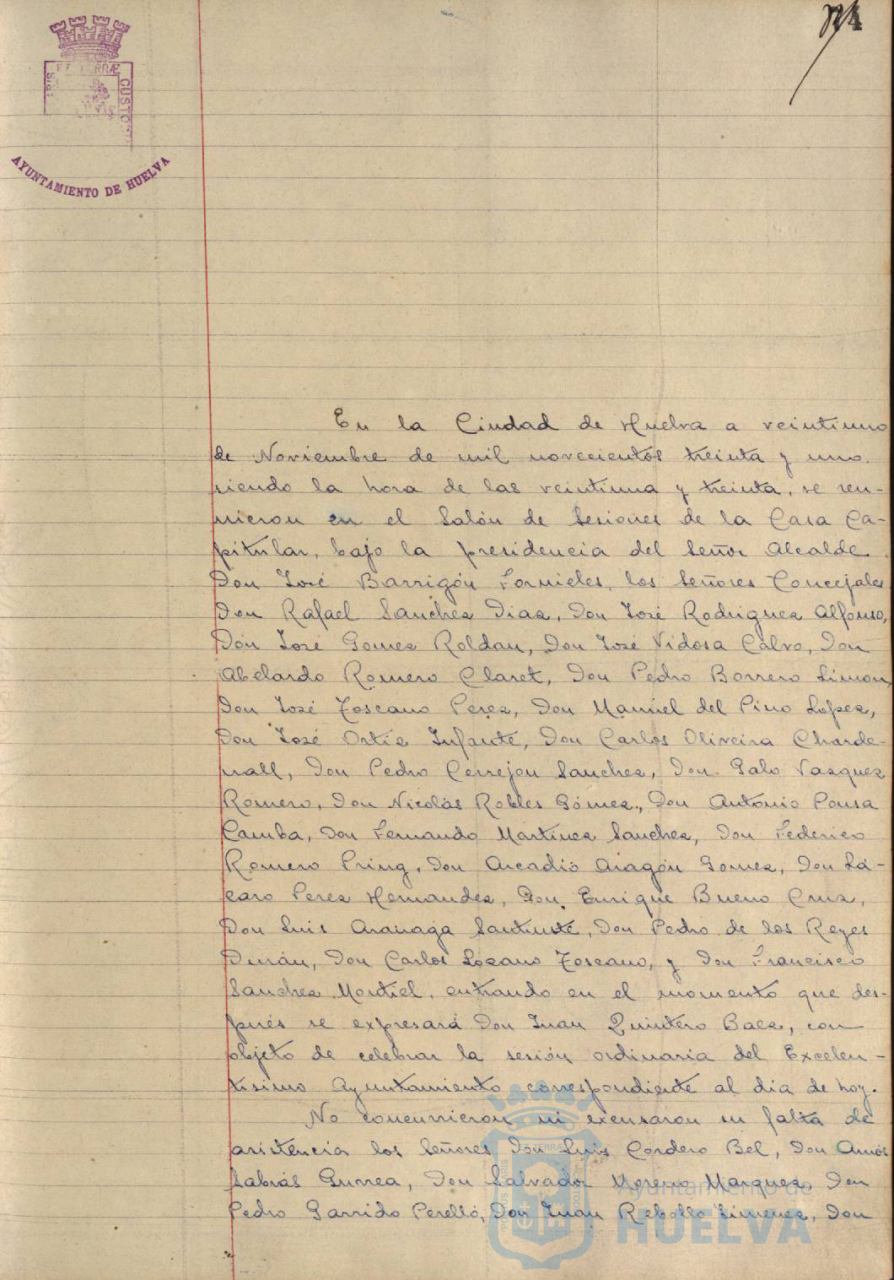 AYUNTAMIENTO DE HUELVA
En la Ciudad de Huelva a veintiuno
de Noviembre de mil novecientos treinta y uno.
siendo la hora de las veintiuna y treinta, se reu-
nieron en el Salón de Sesiones de la Casa Ca-
pitular, bajo la presidencia del Señor Alcalde
Don José Barrigón Fornieles, los Señores Concejales
Don Rafael Sanchez Diaz, Don José Rodriguez Alfonso,
Don José Gomez Roldan, Don José Vidosa Calvo, Don
Abelardo Romero Claret, Don Pedro Borrero Limon,
Don José Toscano Perez, Don Manuel del Pino Lopez,
Don José Ortiz Infante, Don Carlos Oliveira Charde-
nall, Don Pedro Cerrejon Sanchez, Don Galo Vazquez
Romero, Don Nicolás Robles Gómez, Don Antonio Pousa
Camba, Don Fernando Martinez Sanchez, Don Federico
Romero Pring, Don Arcadio Aragón Gomez, Don Lá-
zaro Perez Hernandez, Don Enrique Bueno Cruz,
Don Luis Aranaga Santiuste, Don Pedro de los Reyes
Durán, Don Carlos Lozano Toscano, y Don Francisco
Sanchez Montiel, entrando en el momento que des-
pués se expresará Don Juan Quintero Baez, con
objeto de celebrar la sesión ordinaria del Excelen-
tisimo Ayuntamiento correspondiente al dia de hoy.
No concurrieron ni excusaron su falta de
asistencia los Señores Don Luis Cordero Bel, Don Amós
Sabrás Gurrea, Don Salvador Moreno Marquez, Don
Pedro Garrido Perelló, Don Juan Rebollo Jimenez, Don
Ayuntamiento de
HUELVA